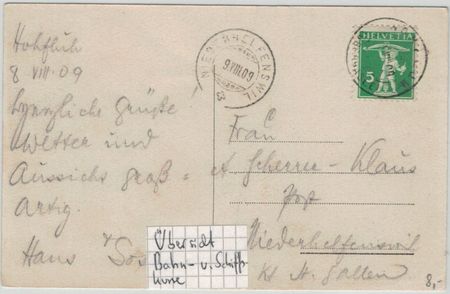 Hohfluh
8 VIII 09
Herzliche Grüße
Wetter und
Aussicht groß=
artig.
Hans
NIEDERHELFENSWIL
9.VIII.09
HELVETIA
5
Frau
Scherrer-Klaus
Post
Niederhelfenswil
Kt St. Gallen
Übersicht
Bahn- u. Schiffs
kurse
8,-